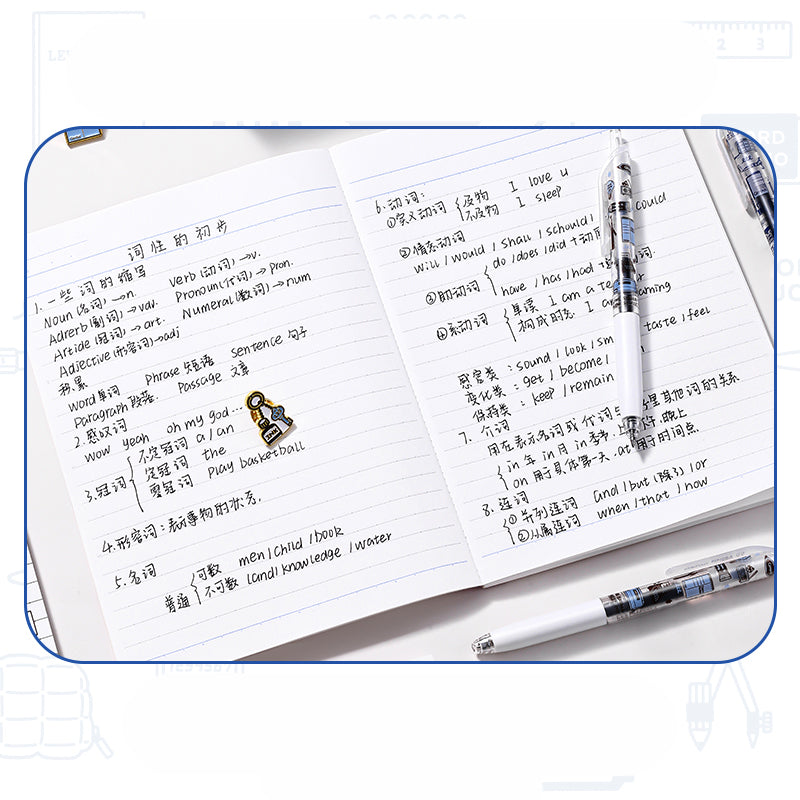 词性的初步
1.一些词的缩写
Noun(名词)→n. verb(动词)→v.
Adrerb(副词)→vdv. Pronoun(代词)→Pron.
Artide(冠词)→art. Numeral(数词)→num
Adjective(形容词)→adj
积累
word单词 Phrase短语 Sentence句子
Paragraph段落. Passage 文章
2.感叹词
wow yeah oh my god...
3.冠词 不定冠词 a/an
定冠词 the
零冠词 play basketball
4.形容词:表示事物的状态.
5.名词
普通 可数 men/child/book
不可数 land/knowledge/water
6.动词:
①实义动词 及物 I love u
不及物 I sleep
②情态动词
will/would/shall/schould/ could
③助动词 do/does/did+动
have/has/had+
④系动词 单误 I am a te
构成时态 I am
感官类:sound/look/sm taste/feel
变化类:get/become/
保持类:keep/remain
7.介词
用在表示名词或代词 其他词的关系
in年 in月 in季 晚上
on 用于具体第一天.at用于时间点
8.连词
①并列连词 and/but(除了)/or
②从属连词 when/that/how
2 3